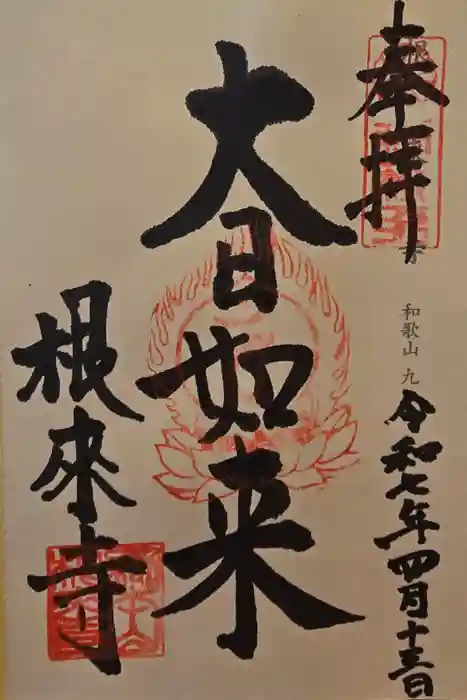 奉拝
和歌山 九
令和七年四月十三日
大日如来
根来寺